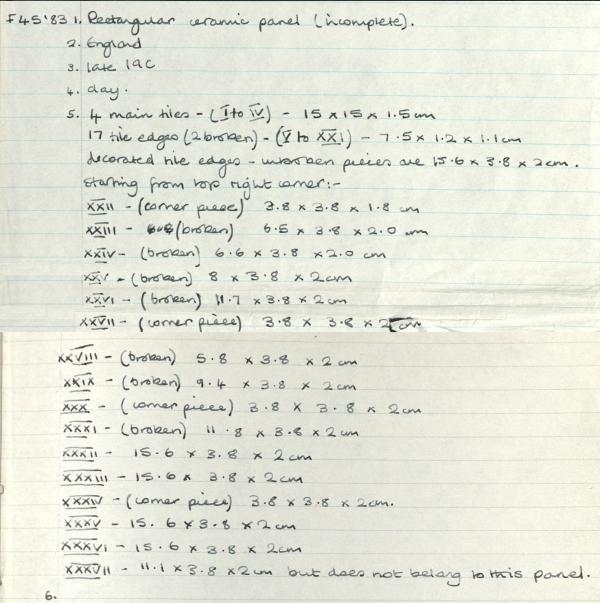 F45'83 1. Rectangular ceramic panel (incomplete).
2. England
3. late 19C
4. day.
5. 4 main tiles - (I to IV) - 15 x 15 x 1.5 cm
17 tile edges (2 broken) - (V to XXI) - 7.5 x 1.2 x 1.1 cm
decorated tile edges - unbroken pieces are 15.6 x 3.8 x 2 cm.
starting from top right corner:-
XXII - (corner piece) 3.8 x 3.8 x 1.8 cm
XXIII - (broken) 6.5 x 3.8 x 2.0 cm
XXIV - (broken) 6.6 x 3.8 x 2.0 cm
XXV - (broken) 8 x 3.8 x 2 cm
XXVI - (broken) 11.7 x 3.8 x 2 cm
XXVII - (corner piece) 3.8 x 3.8 x 2 cm
XXVIII - (broken) 5.8 x 3.8 x 2 cm
XXIX - (broken) 9.4 x 3.8 x 2 cm
XXX - (corner piece) 3.8 x 3.8 x 2 cm
XXXI - (broken) 11.8 x 3.8 x 2 cm
XXXII - 15.6 x 3.8 x 2 cm
XXXIII - 15.6 x 3.8 x 2 cm
XXXIV - (corner piece) 3.8 x 3.8 x 2 cm.
XXXV - 15.6 x 3.8 x 2 cm
XXXVI - 15.6 x 3.8 x 2 cm
XXXVII - 11.1 x 3.8 x 2 cm but does not belong to this panel.
6.